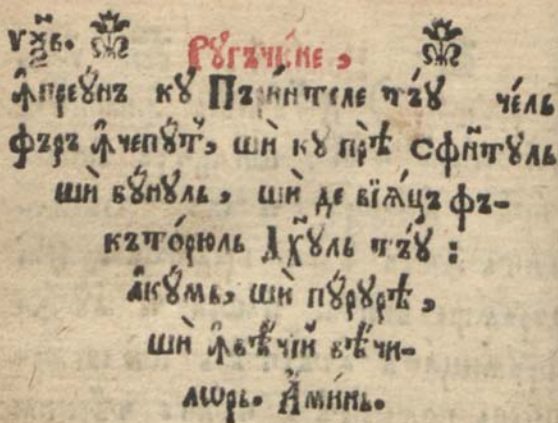 ѴХ҃В.
РꙋГЪЧЮ́НЕ,
ꙟпреꙋ́нъ кꙋ Пъри́нтеле тъ́ꙋ че́ль
фъръ ꙟчепꙋ́т, шѝ кꙋ прѣ̀ Сфи́нтꙋль
шѝ бꙋ́нꙋль, шѝ де вїѧ́цъ фъ-
къто́рюль Дх҃ꙋль тъ́ꙋ:
акꙋ́мь, шѝ пꙋ́рꙋрѣ,
шѝ ꙟвѣ́чїй вѣ́чи-
лѡрь. Ами́нь.